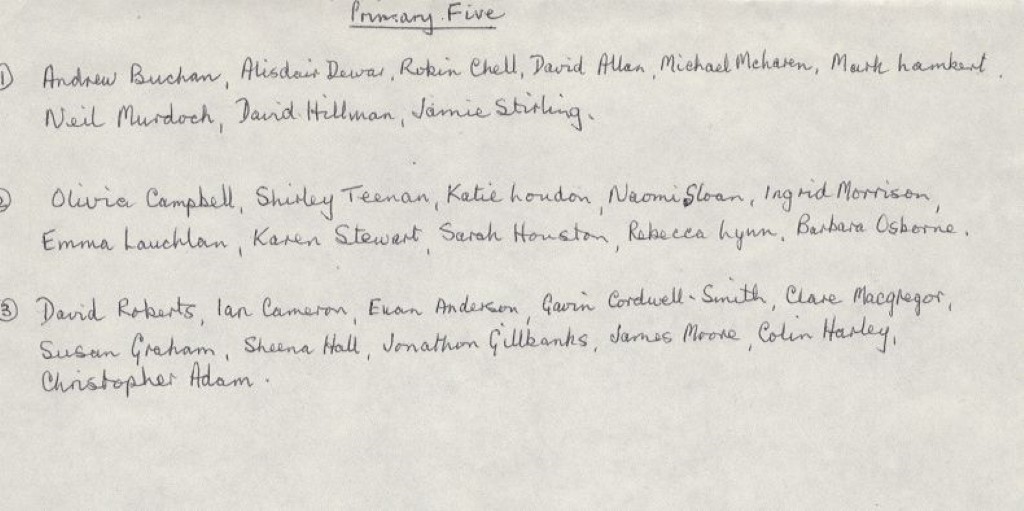 Primary Five
① Andrew Buchan, Alisdair Dewar, Robin Chell, David Allan, Michael McLaren, Mark Lambert.
Neil Murdoch, David Hillman, Jamie Stirling.
② Olivia Campbell, Shirley Teenan, Katie Loudon, Naomi Sloan, Ingrid Morrison,
Emma Lauchlan, Karen Stewart, Sarah Houston, Rebecca Lynn, Barbara Osborne.
③ David Roberts, Ian Cameron, Euan Anderson, Gavin Cordwell-Smith, Clare Macgregor,
Susan Graham, Sheena Hall, Jonathon Gillbanks, James Moore, Colin Harley,
Christopher Adam.